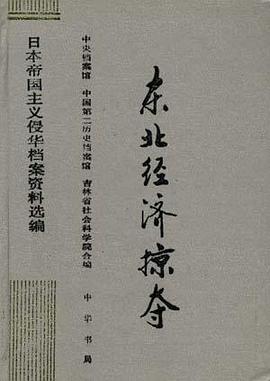 日本帝国主义侵华档案资料选编
中央档案馆 中国第二历史档案馆 吉林省社会科学院合编
东北经济掠夺
中华书局